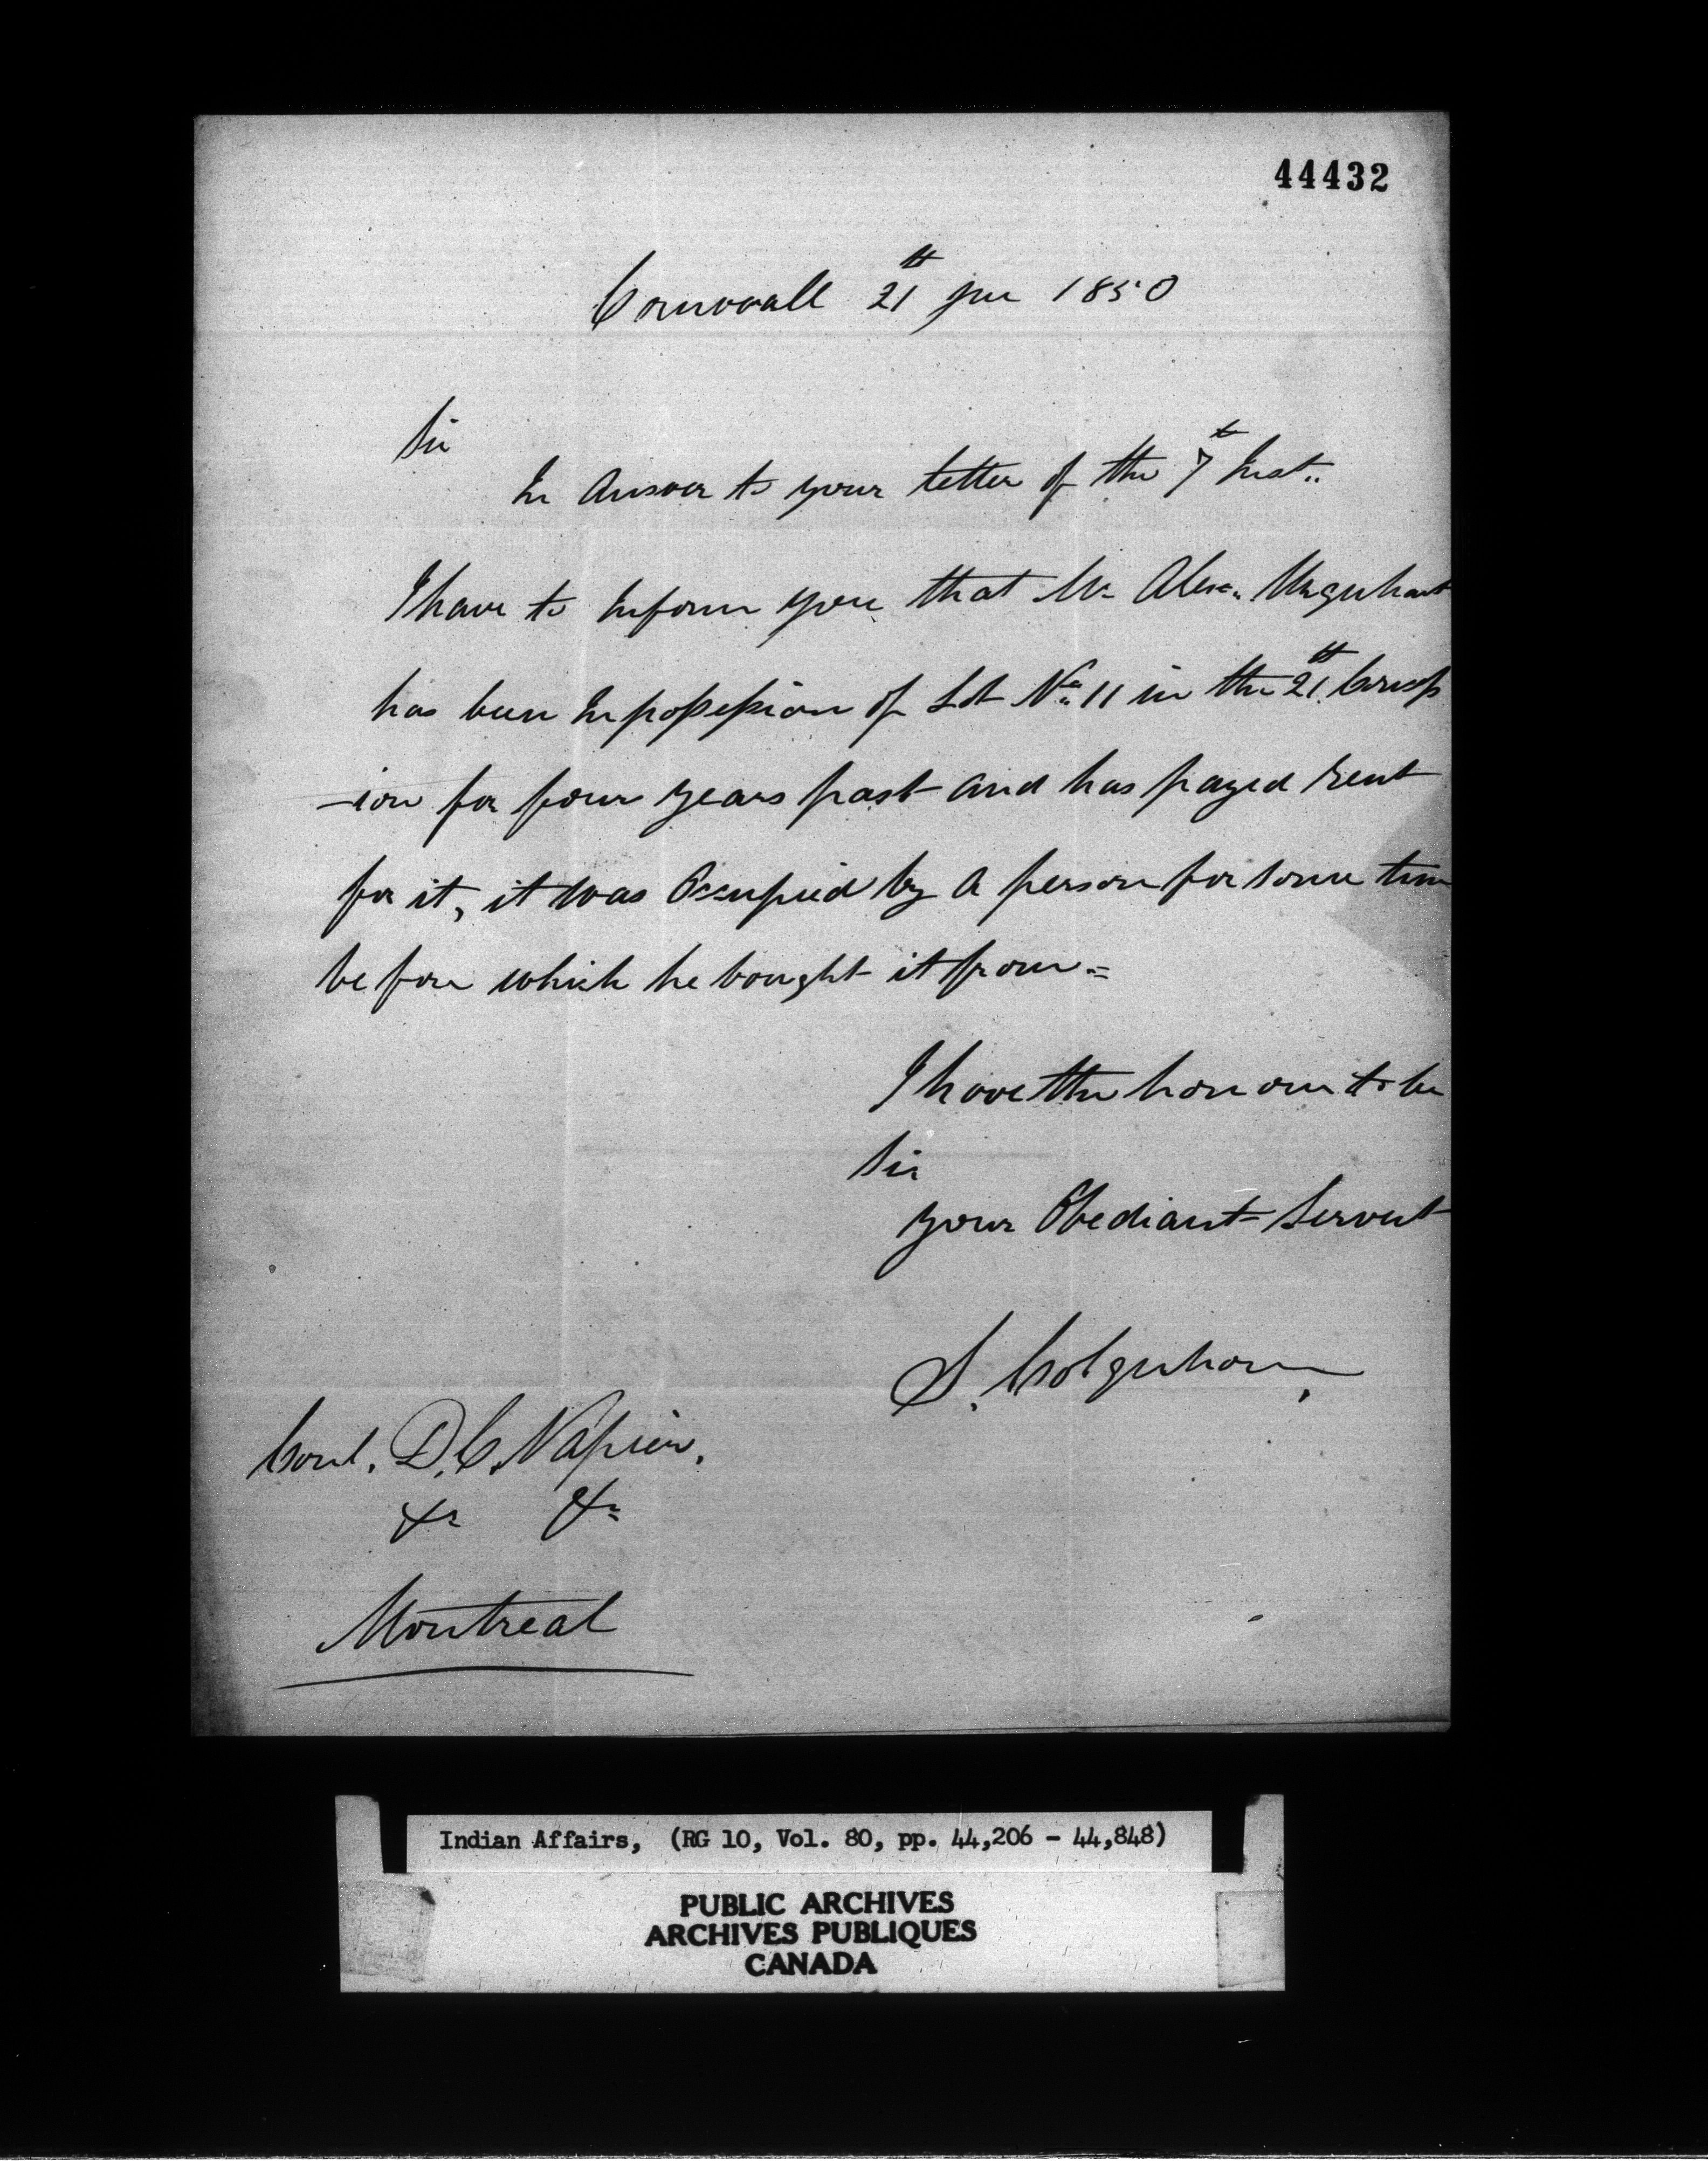 44432
Cornwall 21th Jun 1850
Sir
In Answer to your letter of the 7th Inst..
I have to Inform you that Mr Alexr. Urquhart
has been In possession of Lot No. 11 in the 21th Concess
-ion for four years past and has payed rent
for it, it was Occupied by a person for some time
before which he bought it from=
I have the honour to be
Sir
your Obediant Servent
S. Colquhoun
Conl. D. C. Napier.
&c &c
Montreal
Indian Affairs, (RG 10, Vol. 80, pp. 44,206 - 44,848)
PUBLIC ARCHIVES
ARCHIVES PUBLIQUES
CANADA